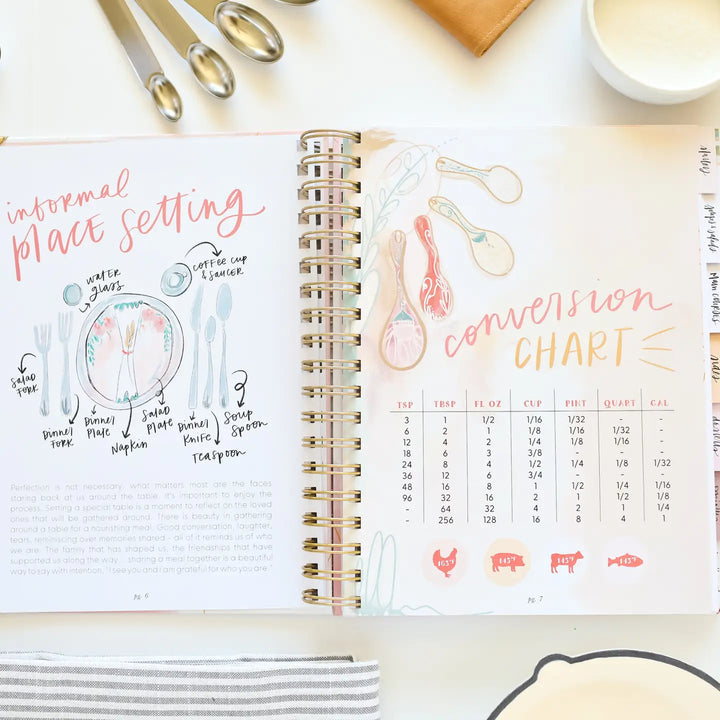 informal
place setting
water
glass
coffee cup
& saucer
salad
fork
Dinner
Fork
Dinner
Plate
Napkin
Salad
Plate
Dinner
Knife
Teaspoon
Soup
Spoon
Perfection is not necessary, what matters most are the faces
staring back at us around the table. It's important to enjoy the
process. Setting a special table is a moment to reflect on the loved
ones that will be gathered around. There is beauty in gathering
around a table for a nourishing meal. Good conversation, laughter,
tears, reminiscing over memories shared - all of it reminds us of who
we are. The family that has shaped us, the friendships that have
supported us along the way... sharing a meal together is a beautiful
way to say with intention, "I see you and I am grateful for who you are."
PG. 6
conversion
CHART
TSP TBSP FL OZ CUP PINT QUART GAL
3 1 1/2 1/16 1/32 - -
6 2 1 1/8 1/16 1/32 -
12 4 2 1/4 1/8 1/16 -
18 6 3 3/8 - - -
24 8 4 1/2 1/4 1/8 1/32
36 12 6 3/4 - - -
48 16 8 1 1/2 1/4 1/16
96 32 16 2 1 1/2 1/8
- 64 32 4 2 1 1/4
- 256 128 16 8 4 1
165°F 145°F 145°F 145°F
PG. 7